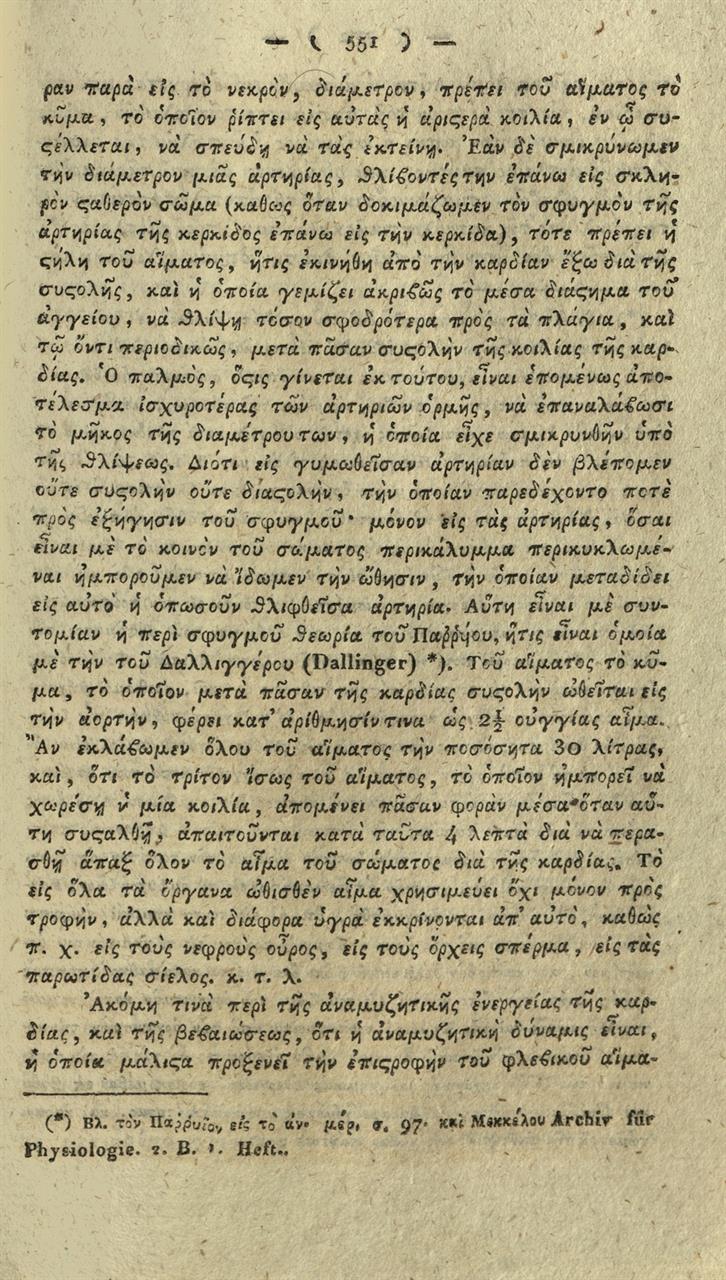 — ( 551 ) —
ραν παρὰ εἰς τὸ νεκρὸν, διάμετρον, πρέπει τοῦ αἵματος τὸ
κῦμα, τὸ ὁποῖον ῥίπτει εἰς αὐτὰς ἡ ἀριϛερὰ κοιλία, ἐν ᾧ συ-
ϛέλλεται, νὰ σπεύδῃ νὰ τὰς ἐκτείνῃ. Ἐὰν δὲ σμικρύνωμεν
τὴν διάμετρον μιᾶς ἀρτηρίας, ϑλίβοντές την ἐπάνω εἰς σκλη-
ρὸν ϛαθερὸν σῶμα (καθως ὅταν δοκιμάζωμεν τὸν σφυγμὸν τῆς
ἀρτηρίας τῆς κερκίδος ἐπάνω εἰς τὴν κερκίδα), τότε πρέπει ἡ
ϛήλη τοῦ αἵματος, ἥτις ἐκινήθη ἀπὸ τὴν καρδίαν ἔξω διὰ τῆς
συϛολῆς, καὶ ἡ ὁποία γεμίζει ἀκριβῶς τὸ μέσα διάϛημα τοῦ
ἀγγείου, νὰ ϑλίψῃ τόσον σφοδρότερα πρὸς τὰ πλάγια, καὶ
τῷ ὄντι περιοδικῶς, μετὰ πᾶσαν συϛολὴν τῆς κοιλίας τῆς καρ-
δίας. Ὁ παλμὸς, ὅϛις γίνεται ἐκ τούτου, εἶναι ἑπομένως ἀπο-
τέλεσμα ἰσχυροτέρας τῶν ἀρτηριῶν ὁρμῆς, νὰ ἐπαναλάβωσι
τὸ μῆκος τῆς διαμέτρου των, ἡ ὁποία εἶχε σμικρυνθῆν ὑπὸ
τῆς ϑλίψεως. Διότι εἰς γυμωθεῖσαν ἀρτηρίαν δὲν βλέπομεν
οὔτε συϛολὴν οὔτε διαϛολὴν, τὴν ὁποίαν παρεδέχοντο ποτὲ
πρὸς ἐξήγησιν τοῦ σφυγμοῦ· μόνον εἰς τὰς ἀρτηρίας, ὅσαι
εἶναι μὲ τὸ κοινὸν τοῦ σώματος περικάλυμμα περικυκλωμέ-
ναι ἠμποροῦμεν νὰ ἴδωμεν τὴν ὤθησιν, τὴν ὁποίαν μεταδίδει
εἰς αὐτὸ ἡ ὁπωσοῦν ϑλιφθεῖσα ἀρτηρία. Αὕτη εἶναι μὲ συν-
τομίαν ἡ περὶ σφυγμοῦ ϑεωρία τοῦ Παῤῥήου, ἥτις εἶναι ὁμοία
μὲ τὴν τοῦ Δαλλιγγέρου (Dallinger) *). Τοῦ αἵματος τὸ κῦ-
μα, τὸ ὁποῖον μετὰ πᾶσαν τῆς καρδίας συϛολὴν ὠθεῖται εἰς
τὴν ἀορτὴν, φέρει κατ' ἀρίθμησίν τινα ὡς 2½ οὐγγίας αἷμα.
Ἂν ἐκλάβωμεν ὅλου τοῦ αἵματος τὴν ποσότητα 30 λίτρας,
καὶ, ὅτι τὸ τρίτον ἴσως τοῦ αἵματος, τὸ ὁποῖον ἠμπορεῖ νὰ
χωρέσῃ ἡ μία κοιλία, ἀπομένει πᾶσαν φορὰν μέσα ὅταν αὕ-
τη συϛαλθῇ, ἀπαιτοῦνται κατὰ ταῦτα 4 λεπτὰ διὰ νὰ περα-
σθῇ ἅπαξ ὅλον τὸ αἷμα τοῦ σώματος διὰ τῆς καρδίας. Τὸ
εἰς ὅλα τὰ ὄργανα ὠθισθὲν αἷμα χρησιμεύει ὄχι μόνον πρὸς
τροφὴν, ἀλλὰ καὶ διάφορα ὑγρὰ ἐκκρίνονται ἀπ' αὐτὸ, καθὼς
π. χ. εἰς τοὺς νεφροὺς οὖρος, εἰς τοὺς ὄρχεις σπέρμα, εἰς τὰς
παρωτίδας σίελος. κ. τ. λ.
Ἀκόμη τινὰ περὶ τῆς ἀναμυζητικῆς ἐνεργείας τῆς καρ-
δίας, καὶ τῆς βεβαιώσεως, ὅτι ἡ ἀναμυζητικὴ δύναμις εἶναι,
ἡ ὁποία μάλιϛα προξενεῖ τὴν ἐπιϛροφὴν τοῦ φλεβικοῦ αἵμα-
(*) Βλ. τὸν Παῤῥυῖον εἰς τὸ ἀν. μέρ. σ. 97. καὶ Μεκκέλου Archiv für
Physiologie. 2. B. 1. Heft..